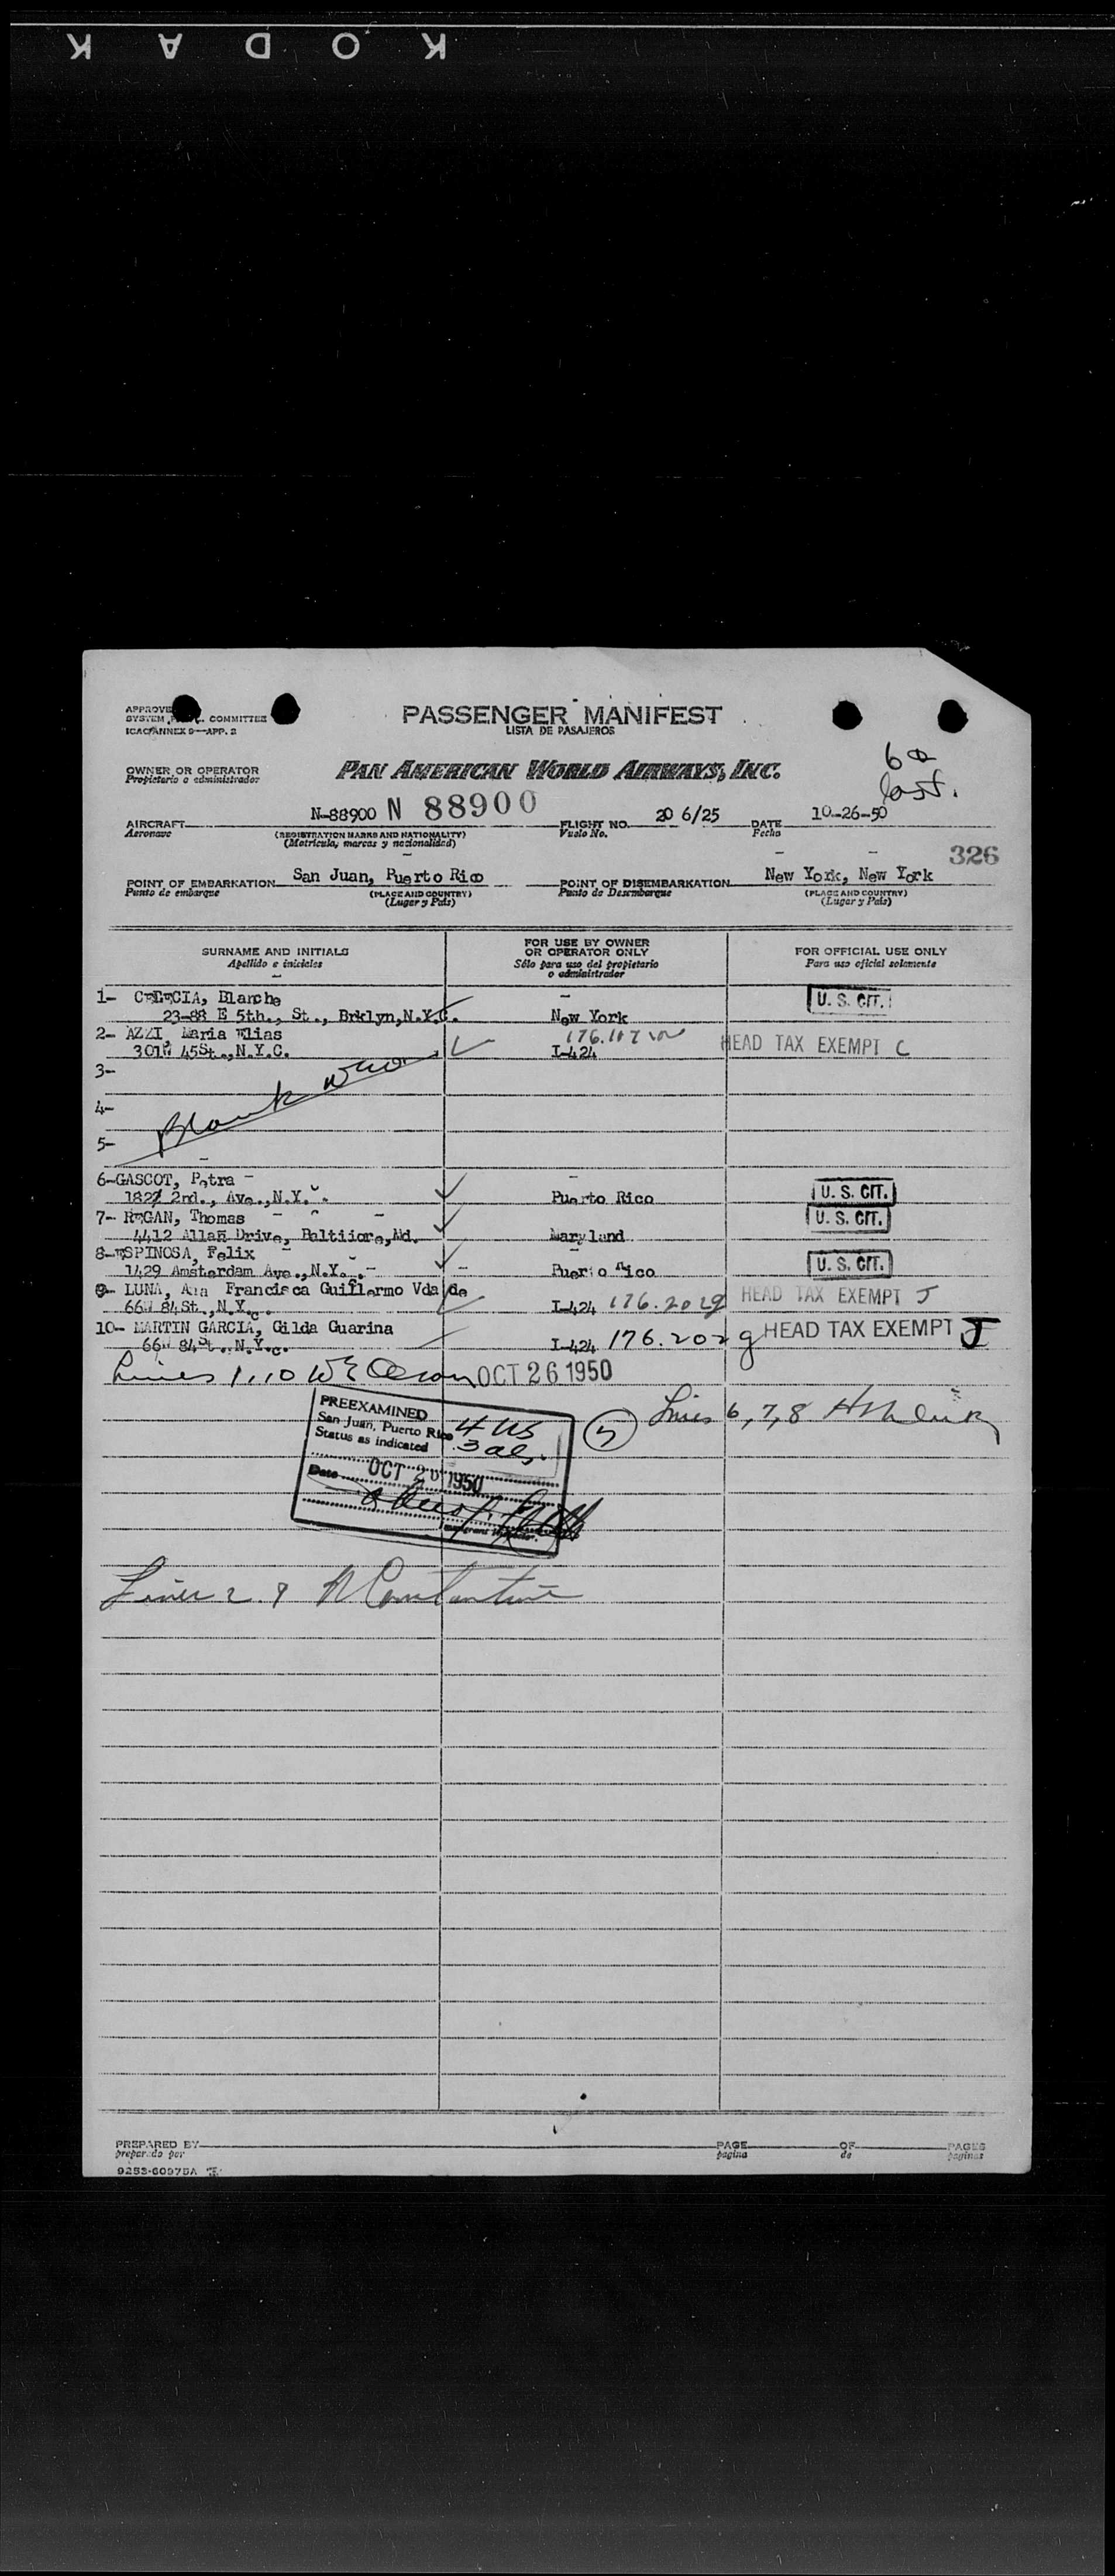 KODAK
PASSENGER MANIFEST
LISTA DE PASAJEROS
APPROVE
SYSTEM COMMITTEE
ICAO ANNEX 9—APP. 2
OWNER OR OPERATOR
Propietario o administrador
PAN AMERICAN WORLD AIRWAYS, INC.
last.
AIRCRAFT N-88900 N 88900 FLIGHT NO. 20 6/25 DATE 10-26-50
Aeronave (REGISTRATION MARKS AND NATIONALITY) Vuelo No. Fecha
(Matrícula, marcas y nacionalidad)
326
POINT OF EMBARKATION San Juan, Puerto Rico POINT OF DISEMBARKATION New York, New York
Punto de embarque (PLACE AND COUNTRY) Punto de Desembarque (PLACE AND COUNTRY)
(Lugar y País) (Lugar y País)
SURNAME AND INITIALS FOR USE BY OWNER OR OPERATOR ONLY FOR OFFICIAL USE ONLY
Apellido e iniciales Sólo para uso del propietario o administrador Para uso oficial solamente
1- Blanche U. S. CIT.
23-88 E 5th., St., Brklyn,N.Y.C. New York
2- AZZI, Maria Elias
301W 45St.,N.Y.C. I-424 HEAD TAX EXEMPT C
3-
4- Blank
5-
6-GASCOT, Petra
2nd., Ave.,N.Y. Puerto Rico U. S. CIT.
7- REGAN, Thomas U. S. CIT.
4412 Allan Drive, Baltiiore,Md. Maryland
8-ESPINOSA, Felix
1429 Amsterdam Ave.,N.Y. Puerto Rico U. S. CIT.
9- LUNA, Ana Francisca Guillermo Vda de
66W 84St.,N.Y.C. I-424 176.202g HEAD TAX EXEMPT J
10- MARTIN GARCIA, Gilda Guarina
66W 84St.,N.Y.C. I-424 176.202g HEAD TAX EXEMPT J
Lines 1,10 OCT 26 1950
PREEXAMINED
San Juan, Puerto Rico 4 US
Status as indicated 3 als.
5 Lines 6,7,8
Date OCT 1950
Lines 2 9 Constantine
PREPARED BY PAGE OF PAGES
preparado por pagina de paginas
9253-60975A